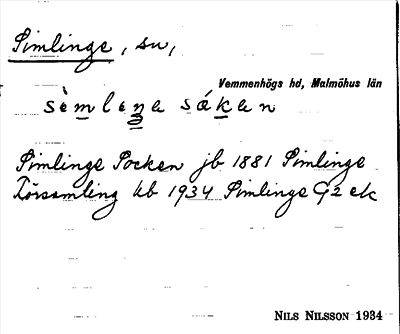 Simlinge, sn,
Vemmenhögs hd, Malmöhus län
sèmleŋa sákan
Simlinge Socken jb 1881 Simlinge
Församling kb 1934 Simlinge G2 ek
NILS NILSSON 1934